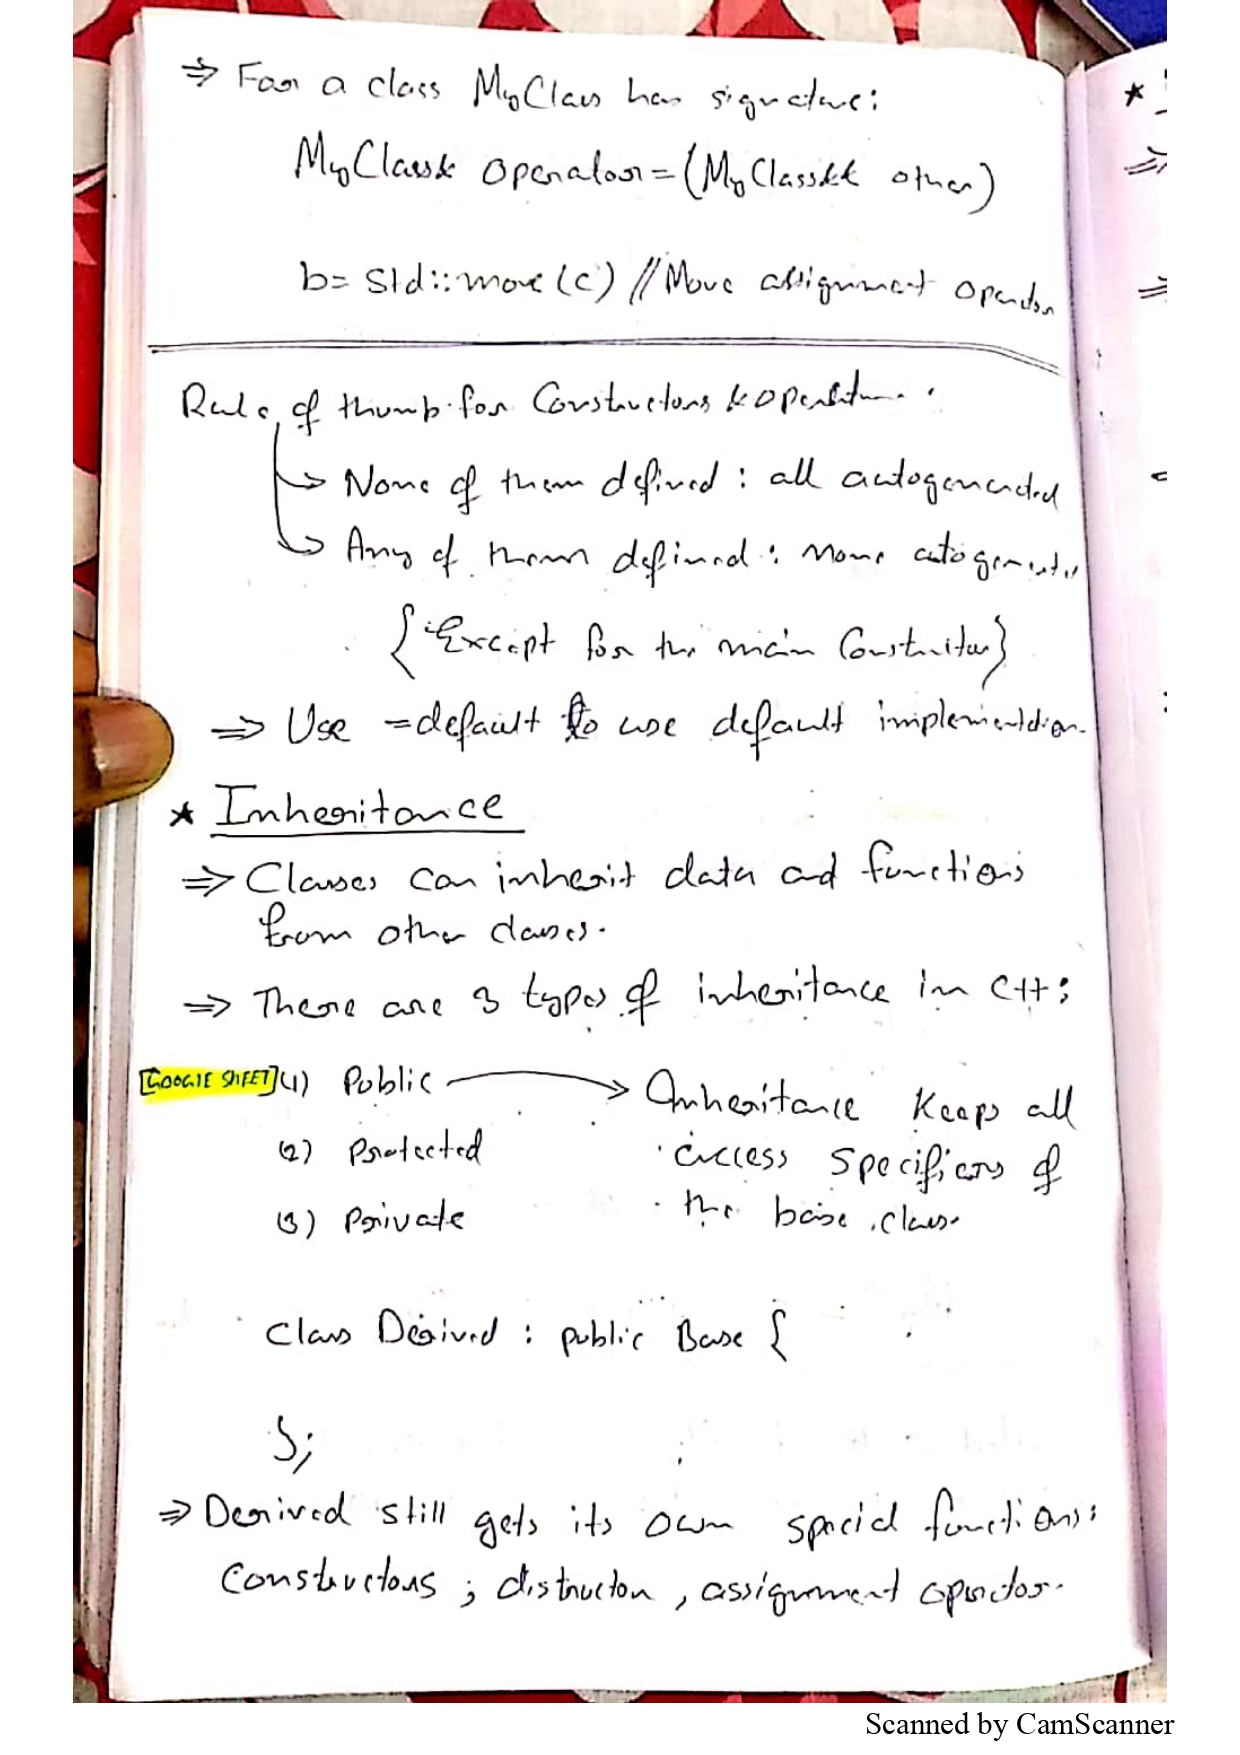 ⇒ For a class MyClass has signature:
MyClass& operator=(MyClass&& other)
b= std::move(c) //Move assignment operator
Rule of thumb for Constructors & operator.
→ None of them defined : all autogenerated
→ Any of them defined : none autogenerated
{Except for the main Constructor}
⇒ Use =default to use default implementation.
★ Inheritance
⇒ Classes can inherit data and functions
from other classes.
⇒ There are 3 types of inheritance in C++:
[GOOGLE SHEET] (1) Public → Inheritance keeps all
(2) Protected access specifiers of
(3) Private the base class.
Class Derived : public Base {
};
⇒ Derived still gets its own special functions:
Constructors ; distructor , assignment operator.
Scanned by CamScanner